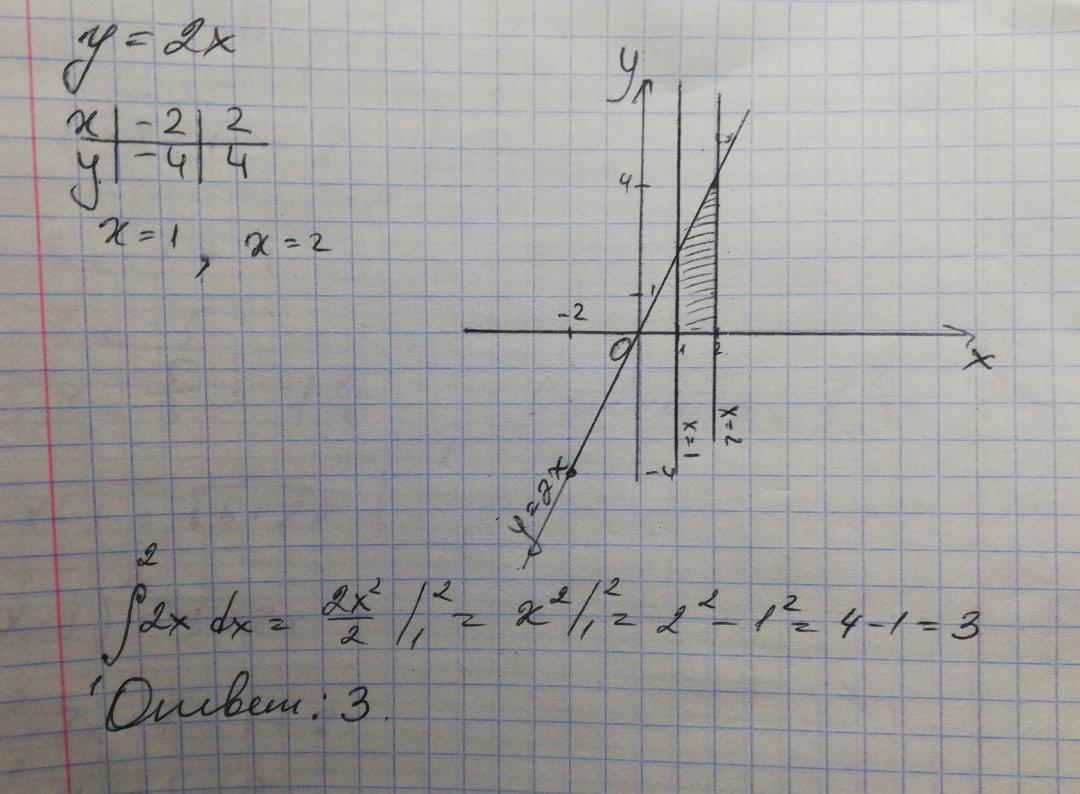 y = 2x
x | -2 | 2
y | -4 | 4
x = 1 , x = 2
y
4
1
-2
O
1
2
x
1=x
2=x
-4
y=2x
∫₁² 2x dx = 2x²/2 /₁² = x² /₁² = 2² - 1² = 4 - 1 = 3
Ответ: 3.